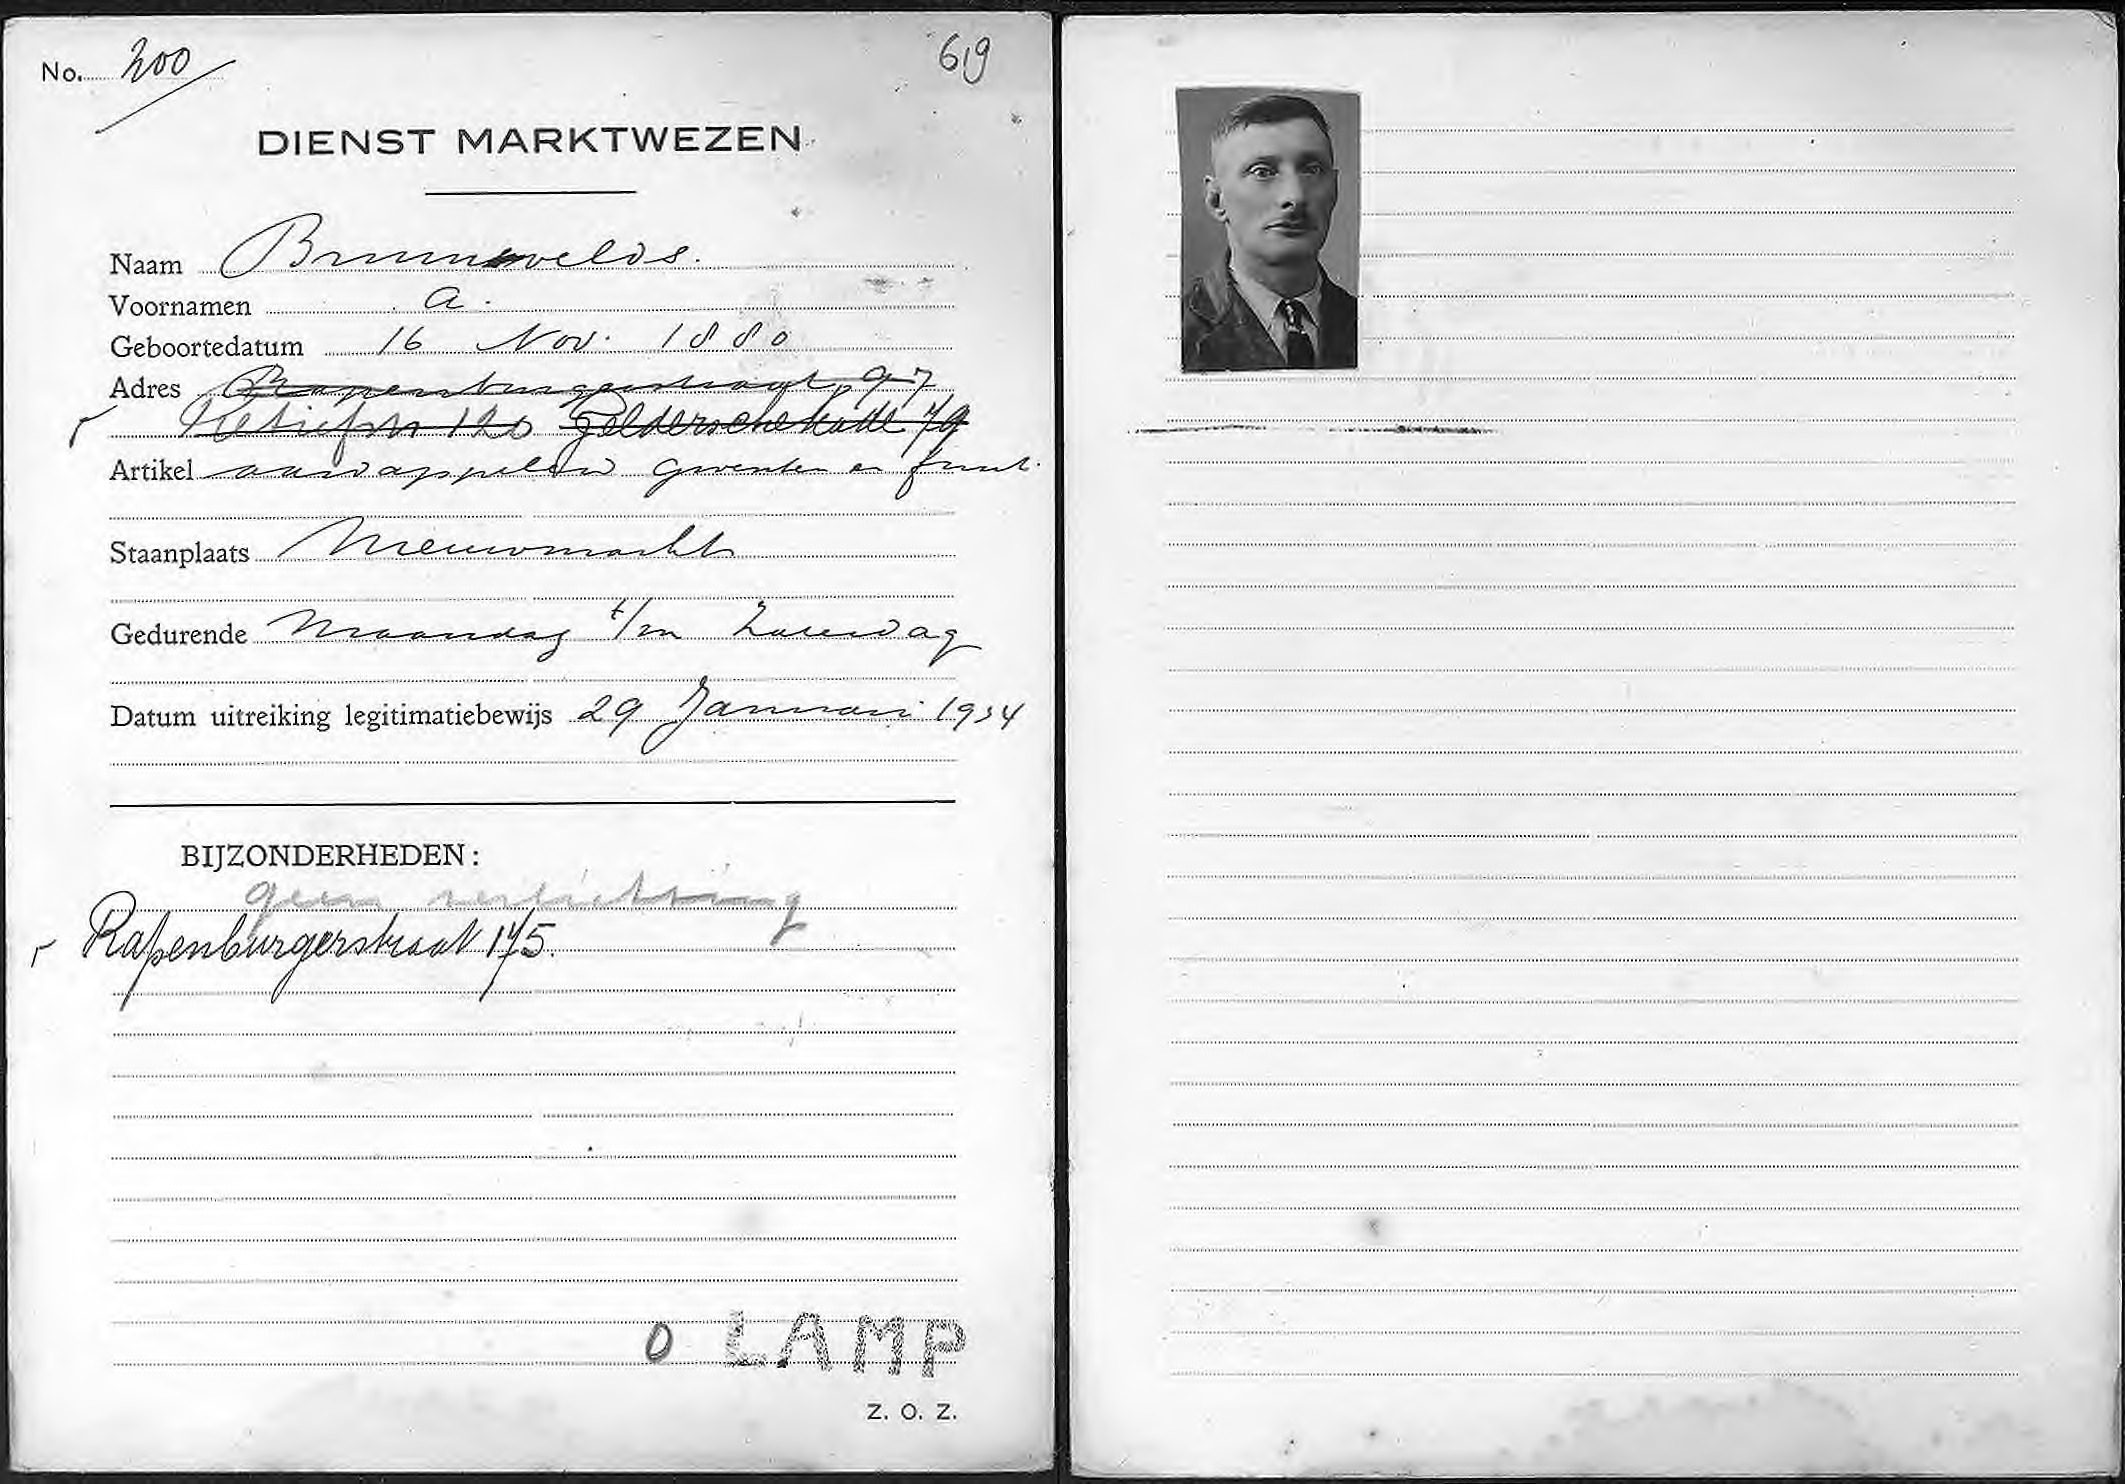 No. 200 619
DIENST MARKTWEZEN
Naam Brunnvelds.
Voornamen A.
Geboortedatum 16 Nov. 1880
Adres Rapenburgerstraat 97
Retiefstr 120 Gelderschekade 79
Artikel aardappelen groenten en fruit.
Staanplaats Nieuwmarkt
Gedurende Maandag t/m Zaterdag
Datum uitreiking legitimatiebewijs 29 Januari 1934
BIJZONDERHEDEN:
geen verlichting
Rapenburgerstraat 175.
0 LAMP
Z. O. Z.